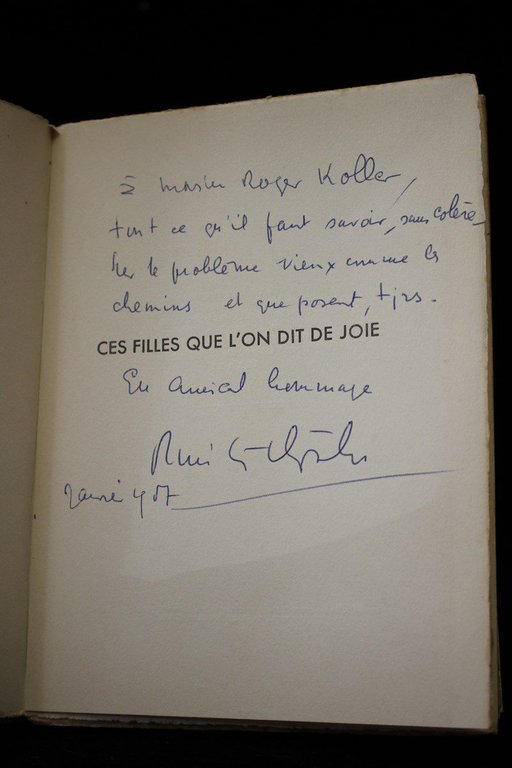 à Monsieur Roger Koller,
tout ce qu'il faut savoir, sans colère
sur le problème vieux comme les
chemins et que posent, tjrs.
CES FILLES QUE L'ON DIT DE JOIE
En amical hommage
René
Janvier 1957